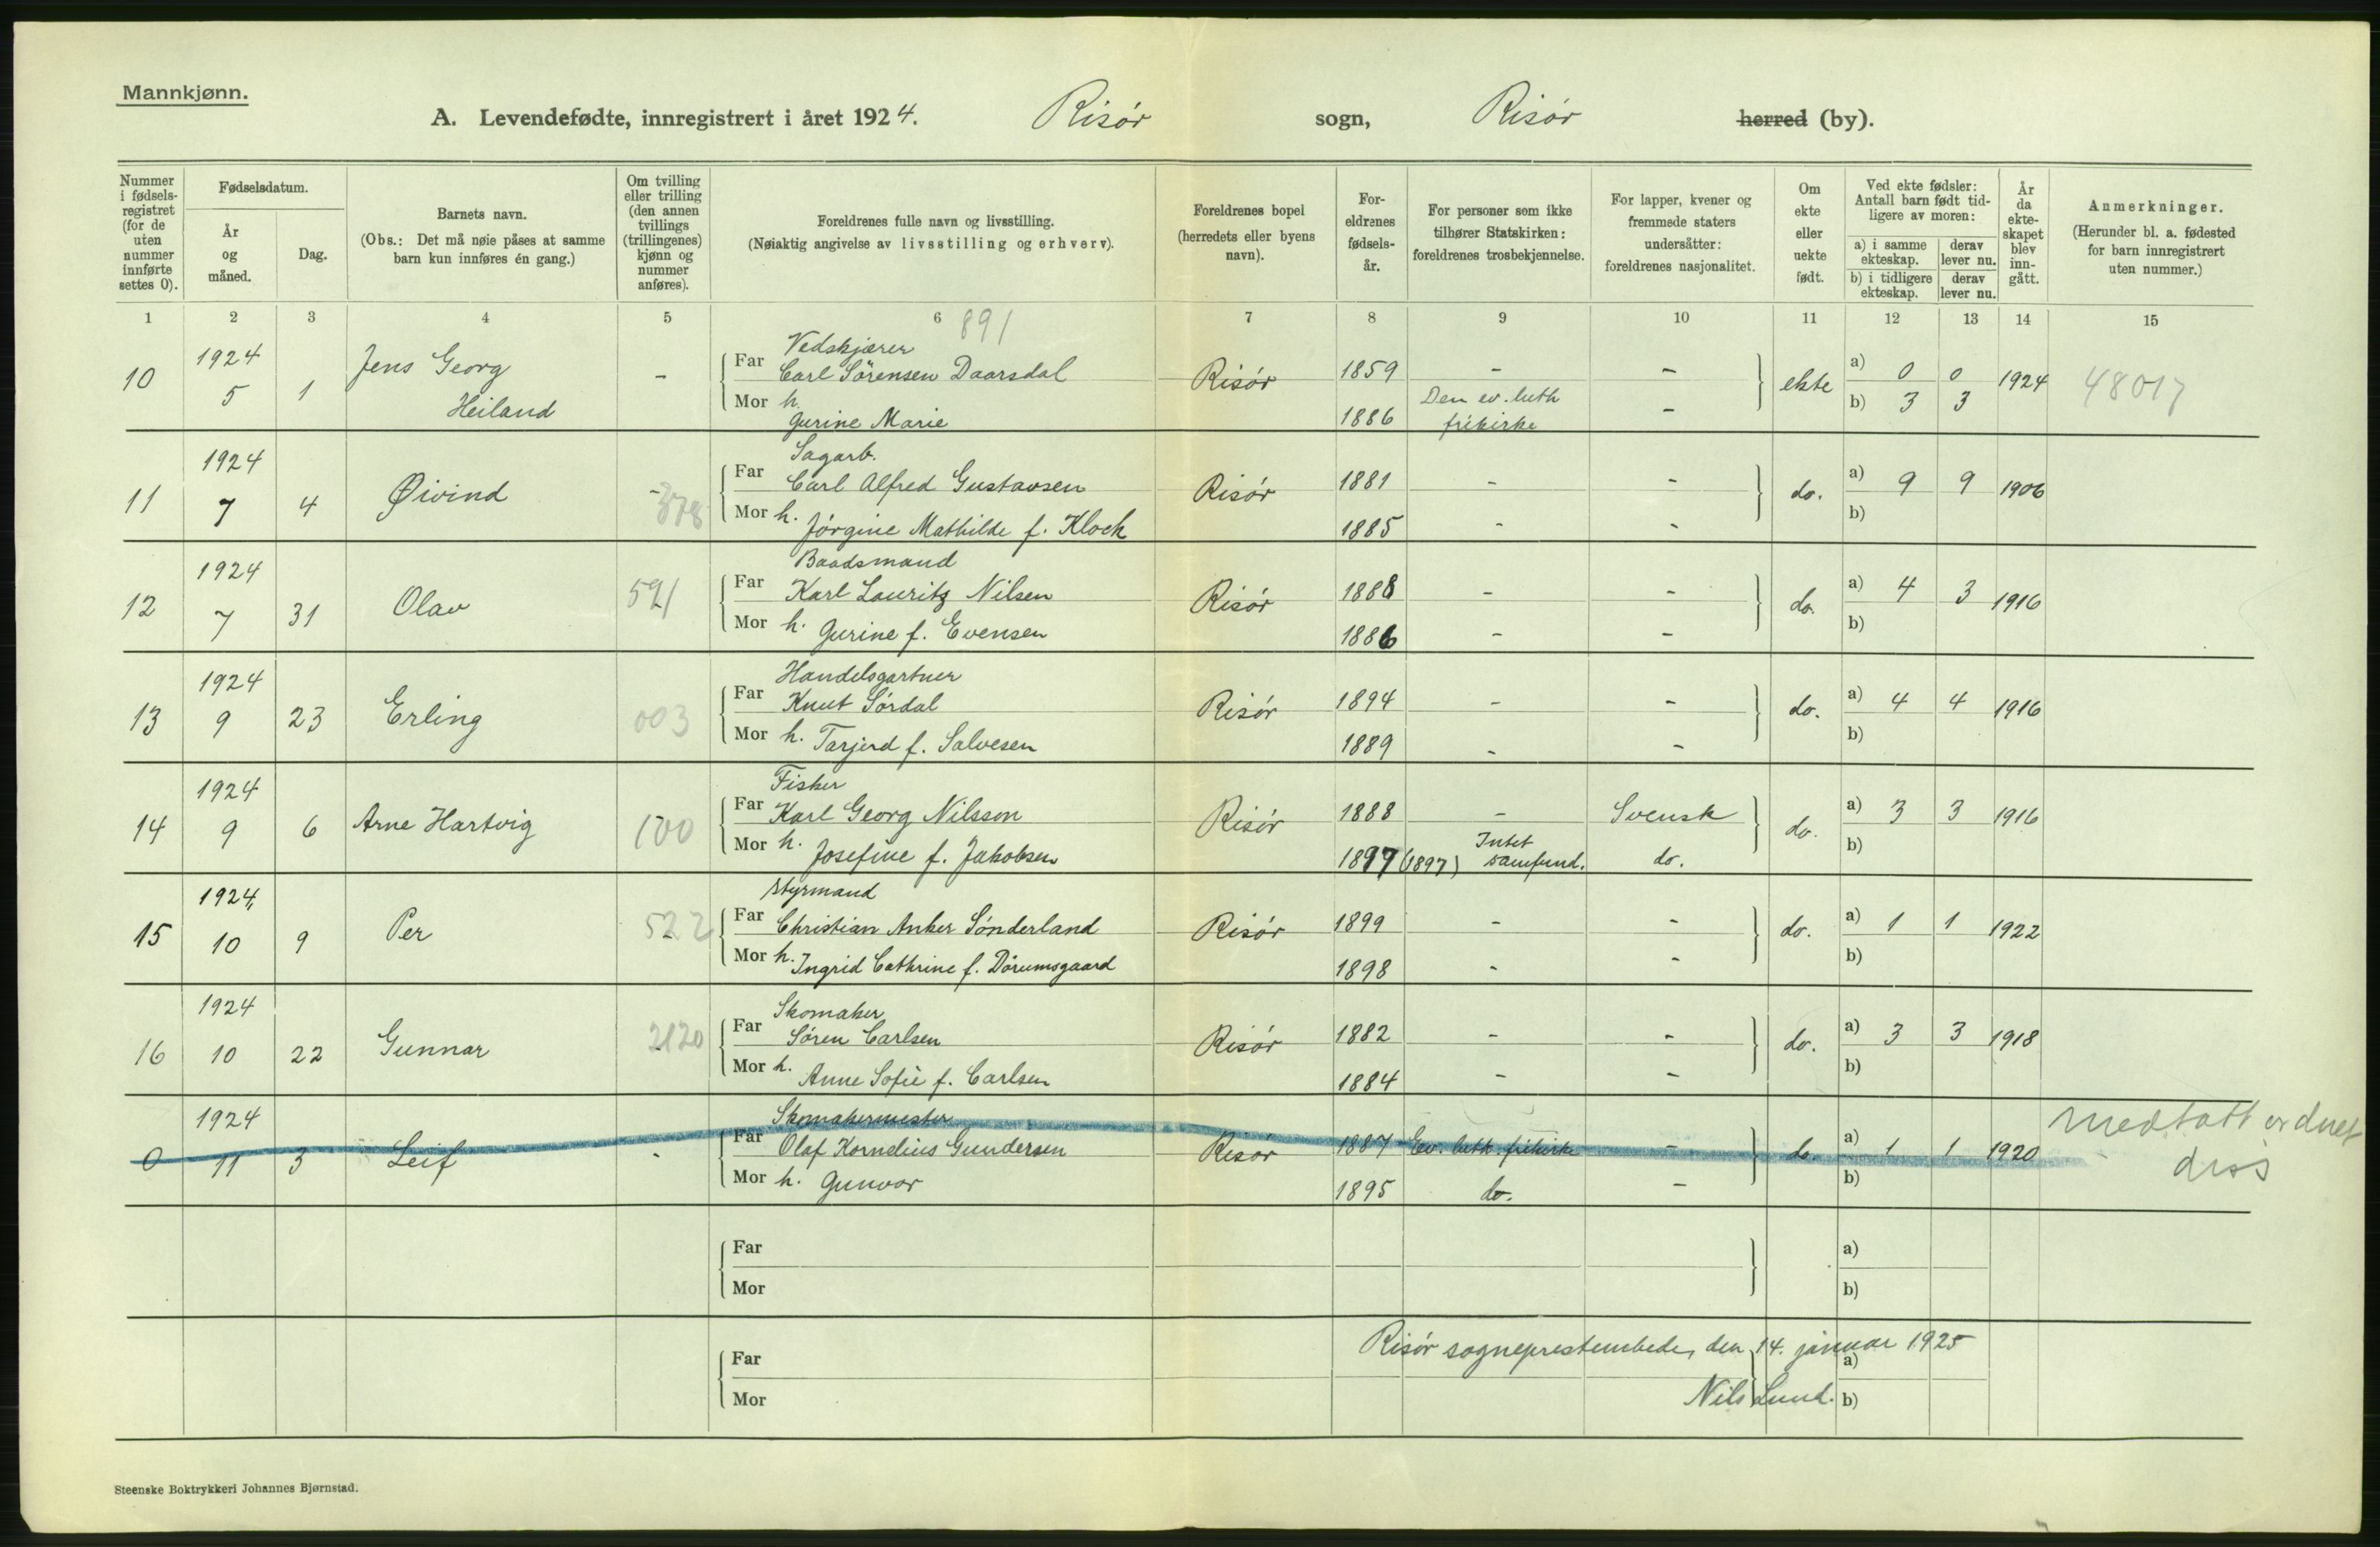 Mannkjønn.
A. Levendefødte, innregistrert i året 1924. Risör sogn, Risör herred (by).
Nummer i fødsels-registret (for de uten nummer innførte settes 0).
Fødselsdatum.
År og måned.
Dag.
Barnets navn.
(Obs.: Det må nøie påses at samme barn kun innføres én gang.)
Om tvilling eller trilling (den annen tvillings (trillingenes) kjønn og nummer anføres).
Foreldrenes fulle navn og livsstilling.
(Nøiaktig angivelse av livsstilling og erhverv).
Foreldrenes bopel (herredets eller byens navn).
For-eldrenes fødsels-år.
For personer som ikke tilhører Statskirken: foreldrenes trosbekjennelse.
For lapper, kvener og fremmede staters undersåtter: foreldrenes nasjonalitet.
Om ekte eller uekte født.
Ved ekte fødsler: Antall barn født tid-ligere av moren:
a) i samme ekteskap. derav lever nu.
b) i tidligere ekteskap. derav lever nu.
År da ekte-skapet blev inn-gått.
Anmerkninger.
(Herunder bl. a. fødested for barn innregistrert uten nummer.)
1 2 3 4 5 6 7 8 9 10 11 12 13 14 15
891
1924 Vedskjærer
10 5 1 Jens Georg Heiland - Far Carl Sörensen Daarsdal Risör 1859 - - ekte a) 0 0 1924 48017
Mor h. Gurine Marie 1886 Den ev. luth frikirke - b) 3 3
1924 Sagarb.
11 7 4 Øivind - 378 Far Carl Alfred Gustavsen Risör 1881 - - do. a) 9 9 1906
Mor h. Jörgine Mathilde f. Klock 1885 - - b)
1924 Baadsmand
12 7 31 Olav 591 Far Karl Lauritz Nilsen Risör 1888 - - do. a) 4 3 1916
Mor h. Gurine f. Evensen 1886 - - b)
1924 Handelsgartner
13 9 23 Erling 003 Far Knut Sördal Risör 1894 - - do. a) 4 4 1916
Mor h. Tarjerd f. Salvesen 1889 - - b)
1924 Fisker
14 9 6 Arne Hartvig 100 Far Karl Georg Nilsson Risör 1888 - Svensk do. a) 3 3 1916
Mor h. Josefine f. Jakobsen 1897 (1897) Intet samfund. do. b)
1924 Styrmand
15 10 9 Per 522 Far Christian Anker Sönderland Risör 1899 - - do. a) 1 1 1922
Mor h. Ingrid Cathrine f. Dörumsgaard 1898 - - b)
1924 Skomaker
16 10 22 Gunnar 2120 Far Sören Carlsen Risör 1882 - - do. a) 3 3 1918
Mor h. Anne Sofie f. Carlsen 1884 - - b)
1924 Skomakermester
0 11 3 Leif - Far Olaf Kornelius Gundersen Risör 1887 Ev. luth. frikirke - do. a) 1 1 1920 medtatt diss
Mor h. Gunvor 1895 do. - b)
Far a)
Mor b)
Risör sogneprestembede, den 14. januar 1925
Far a)
Nils Lund.
Mor b)
Steenske Boktrykkeri Johannes Bjørnstad.